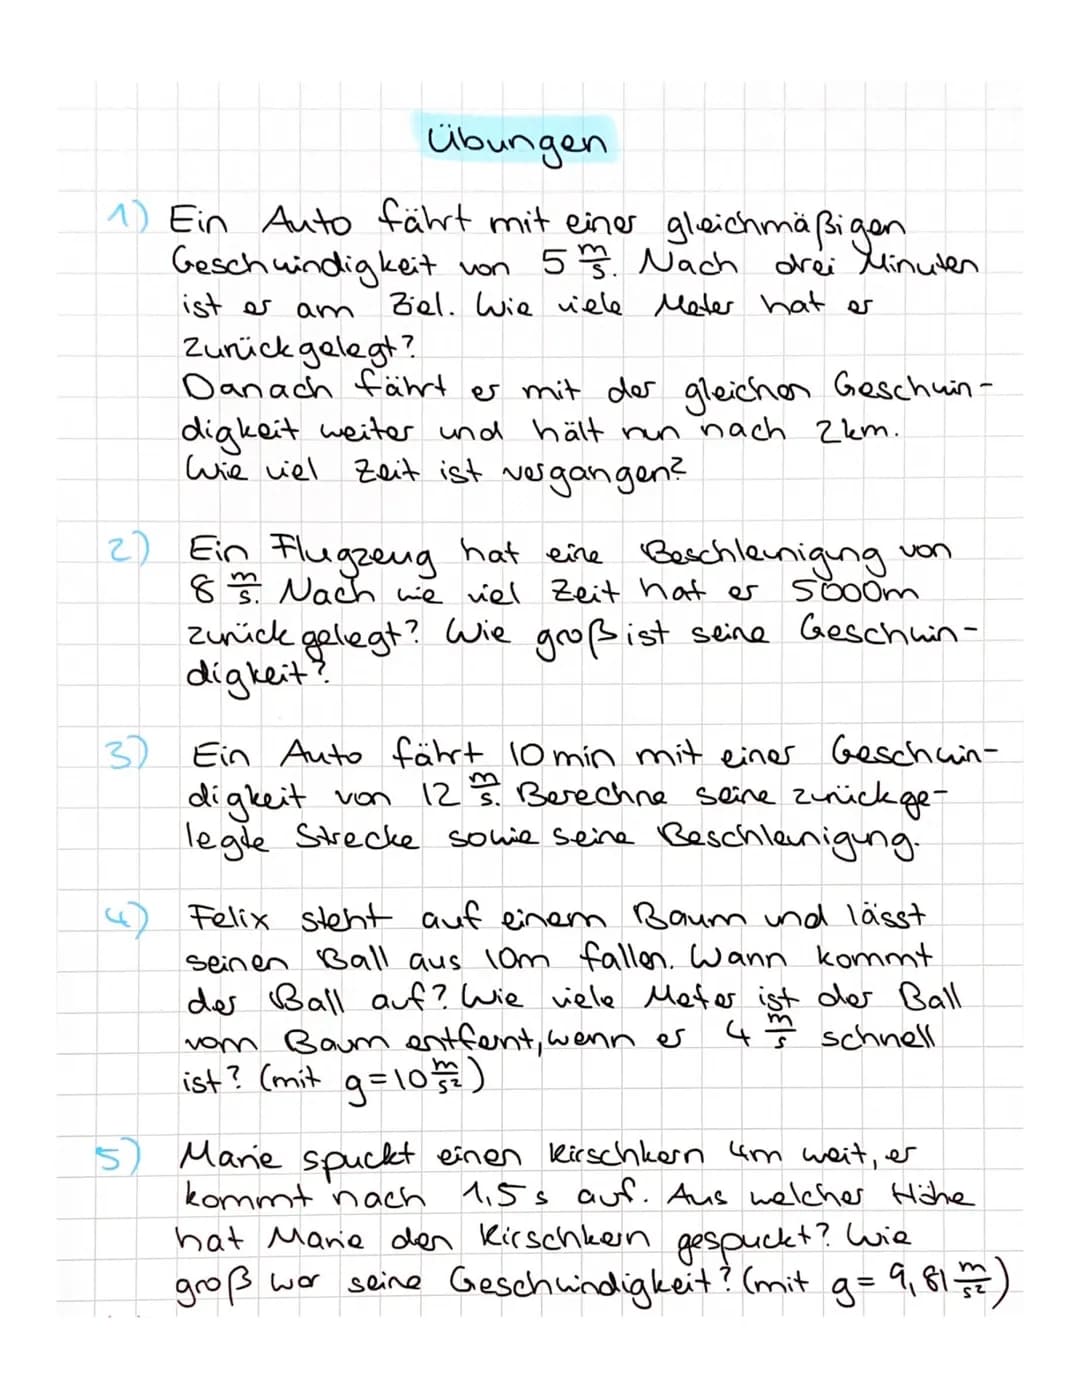 Übungen
1) Ein Auto fährt mit einer gleichmäßigen
Geschwindigkeit von 5 m/s. Nach drei Minuten
ist er am Ziel. Wie viele Meter hat er
zurückgelegt?
Danach fährt er mit der gleichen Geschwin-
digkeit weiter und hält nun nach 2km.
Wie viel Zeit ist vergangen?
2) Ein Flugzeug hat eine Beschleunigung von
8 m/s. Nach wie viel Zeit hat er 5000m
zurückgelegt? Wie groß ist seine Geschwin-
digkeit?
3) Ein Auto fährt 10min mit einer Geschwin-
digkeit von 12 m/s. Berechne seine zurückge-
legte Strecke sowie seine Beschleunigung.
4) Felix steht auf einem Baum und lässt
seinen Ball aus 10m fallen. Wann kommt
der Ball auf? Wie viele Meter ist der Ball
vom Baum entfernt, wenn er 4 m/s schnell
ist? (mit g=10 m/s²)
5) Marie spuckt einen Kirschkern 4m weit, er
kommt nach 1,5s auf. Aus welcher Höhe
hat Marie den Kirschkern gespuckt? Wie
groß war seine Geschwindigkeit? (mit g= 9,81 m/s²)